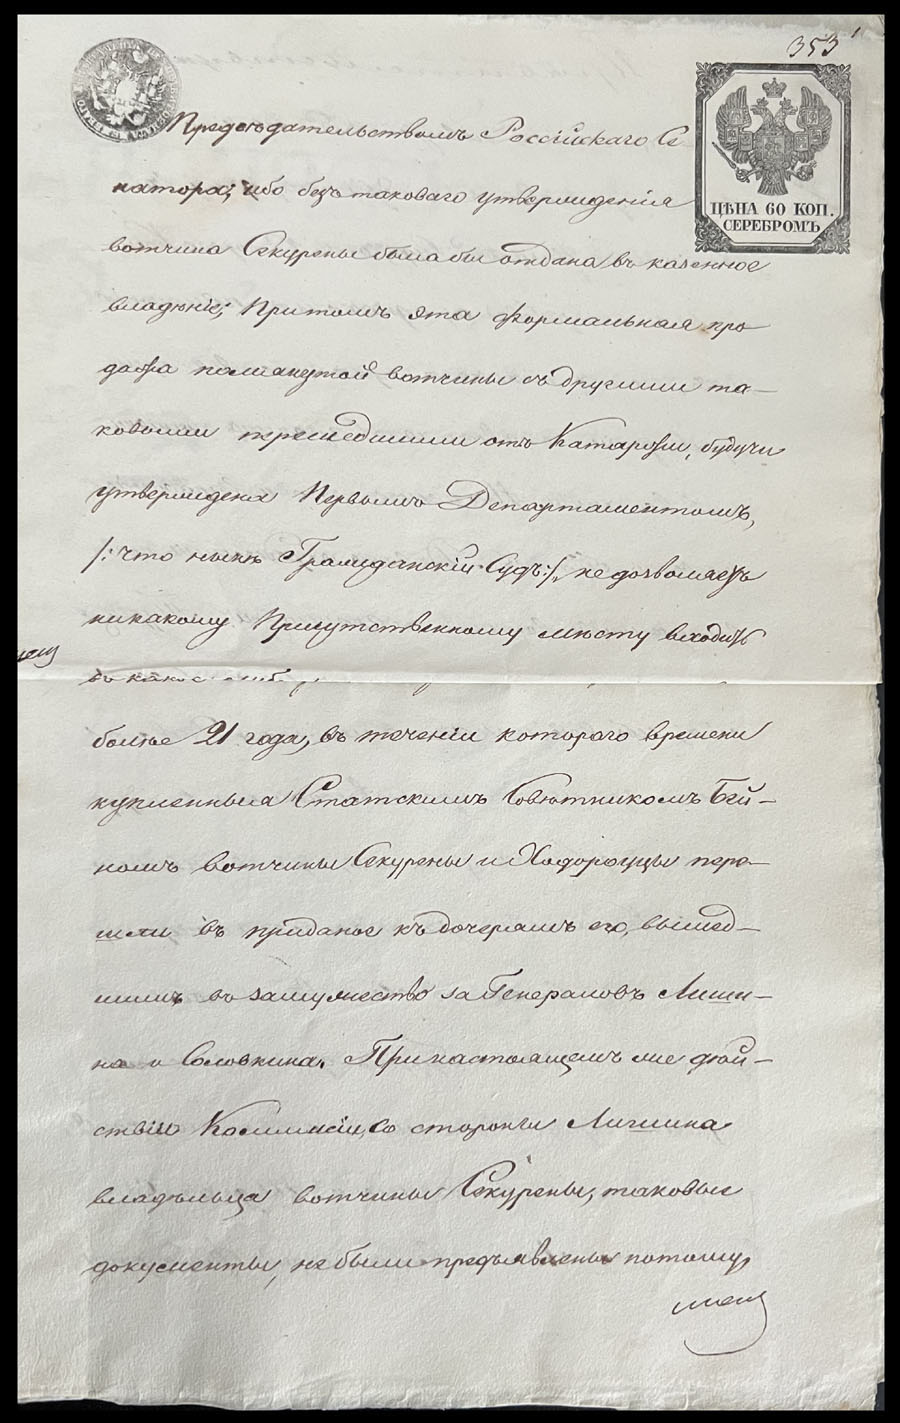 353
ЦѢНА 60 КОП.
СЕРЕБРОМЪ
Предсѣдательствомъ Россійскаго Се
натора; ибо безъ таковаго утвержденія
вотчина Секурены была бы отдана въ казенное
владѣніе; Притомъ эта формальная про
дажа помянутой вотчины съ другими та-
ковыми перешедшими отъ Катаржи, будучи
утверждена Первымъ Департаментомъ,
/: что нынѣ Гражданскій Судъ :/, не дозволяетъ
никакому Присутственному мѣсту входить
въ какое либо
болѣе 21 года, въ теченіи котораго времени
купленныя Статскимъ Совѣтникомъ Бей-
номъ вотчины Секурены и Ходороуцы пере-
шли въ приданое къ дочерамъ его, вышед-
шимъ въ замужество за Генераловъ Лиши-
на и Соловкина. При настоящемъ же дѣй-
ствіи Коммисіи, со стороны Лишина
владѣльца вотчины Секурены, таковые
документы, не были предъявлены потому,